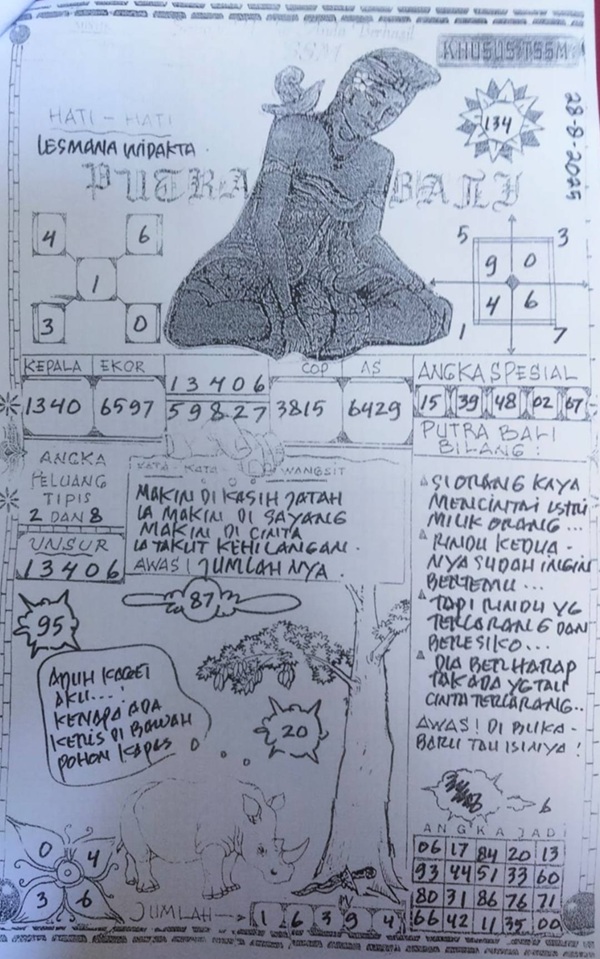 KHUSUS TSSM
HATI - HATI
LESMANA WIDAKTA
134
28-8-2025
PUTRA BALI
4 6
1
3 0
5 3
9 0
4 6
1 7
KEPALA EKOR
1340 6597
13406
59827
COP AS
3815 6429
ANGKA SPESIAL
15 39 48 02 67
ANGKA
PELUANG
TIPIS
2 DAN 8
UNSUR
13406
KATA - KATA WANGSIT
MAKIN DI KASIH JATAH
IA MAKIN DI SAYANG
MAKIN DI CINTA
IA TAKUT KEHILANGAN.
AWAS! JUMLAHNYA.
PUTRA BALI
BILANG:
SI ORANG KAYA
MENCINTAI ISTRI
MILIK ORANG...
RINDU KEDUA-
NYA SUDAH INGIN
BERTEMU...
TAPI RINDU YG
TERLARANG DAN
BERESIKO...
DIA BERHARAP
TAK ADA YG TAU
CINTA TERLARANG..
AWAS! DI BUKA-
BARU TAU ISINYA!
87
95
ADUH KAGET
AKU...!
KENAPA ADA
KERIS DI BAWAH
POHON KAPAS
20
6
ANGKA JADI
06 17 84 20 13
93 44 51 33 60
80 31 86 76 71
66 42 11 35 00
0 4
3 6
JUMLAH
PV
1 6 3 9 4